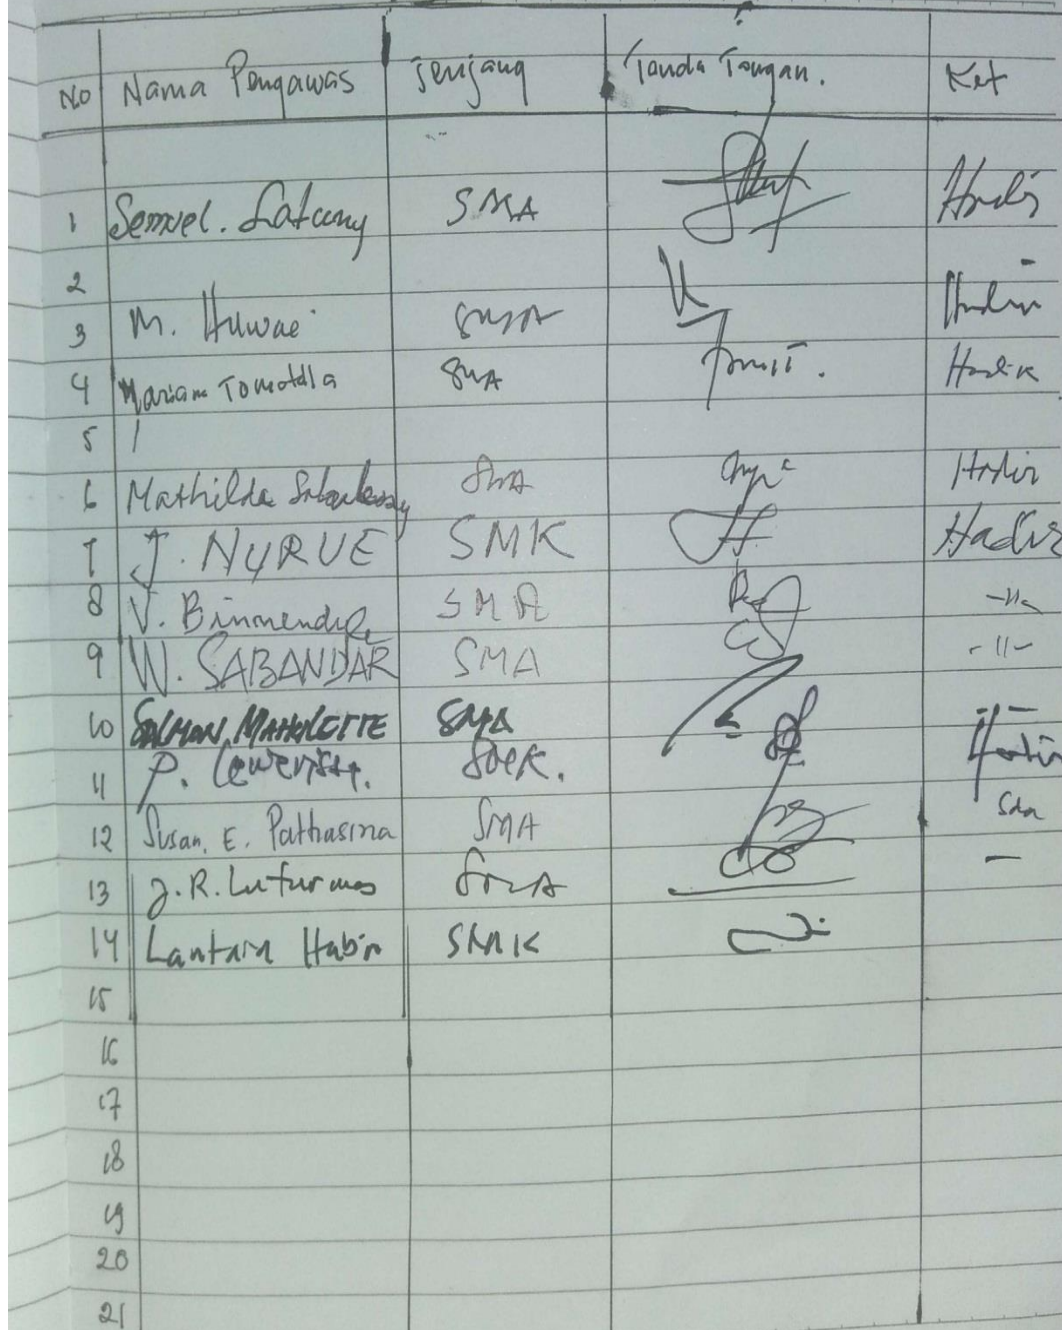 No Nama Pengawas Jenjang Tanda Tangan. Ket
1 Semuel. Latuny SMA Hadir
2
3 M. Huwae SMA Hadir
4 Mariam Tomatala SMA Hadir
5
6 Mathilda SMA Hadir
7 J. NYRUE SMK Hadir
8 V. Binnendyk SMA -11-
9 W. SABANDAR SMA -11-
10 SALMAN MAHULETTE SMA
11 P. Hadir
12 Susan. E. Pattiasina SMA Sda
13 J. R. Luturmas SMA -
14 Lantara Habin SMK
15
16
17
18
19
20
21